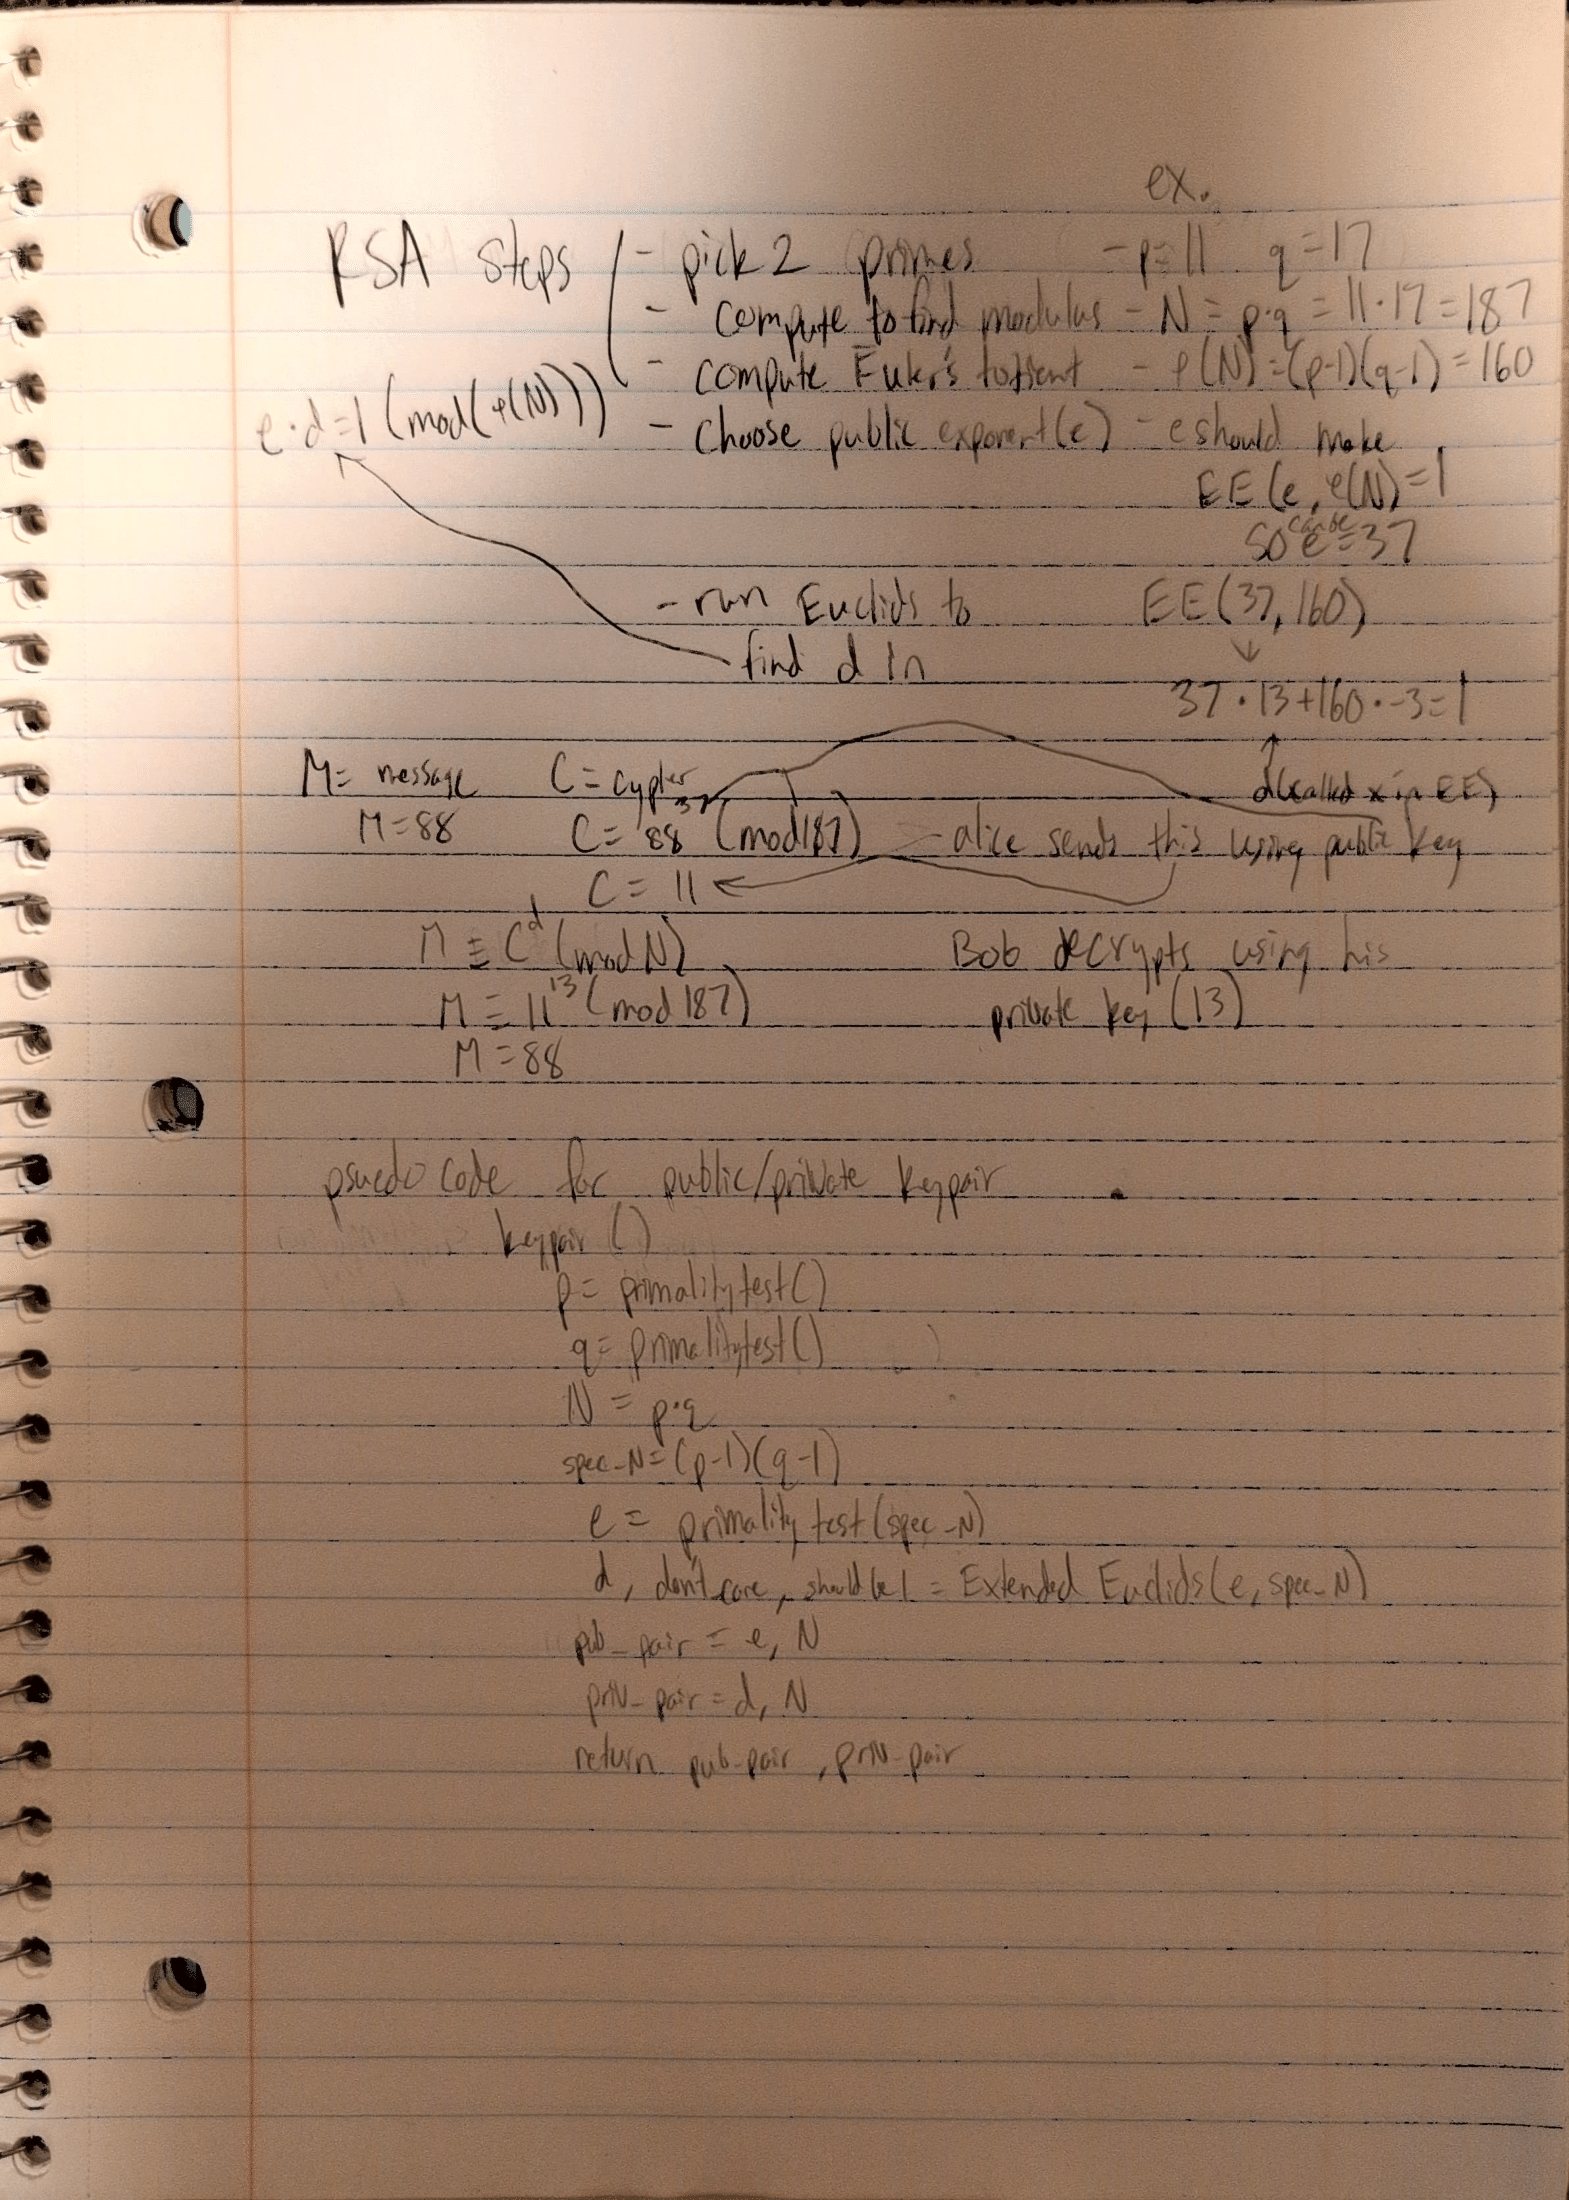 ex.
RSA steps - pick 2 primes - p=11 q=17
- compute to find modulus - N = p·q = 11·17=187
- compute Euler's totient - φ(N)=(p-1)(q-1)=160
e·d=1 (mod(φ(N))) - Choose public exponent(e) - e should make
EE(e, φ(N)=1
can be
so e=37
- run Euclids to EE(37,160)
find d in
37·13+160·-3=1
M= message C= cypter d(called x in EE)
M=88 C= 88^37 (mod187) - alice sends this using public key
C= 11
M ≡ C^d (mod N) Bob decrypts using his
M ≡ 11^13 (mod 187) private key (13)
M=88
psuedo code for public/private keypair
keypair ()
p= primalitytest()
q= primalitytest()
N = p·q
spec_N=(p-1)(q-1)
e = primality test(spec_N)
d, don't care, should be 1 = Extended Euclids(e, spec_N)
pub_pair = e, N
priv_pair = d, N
return pub_pair, priv_pair